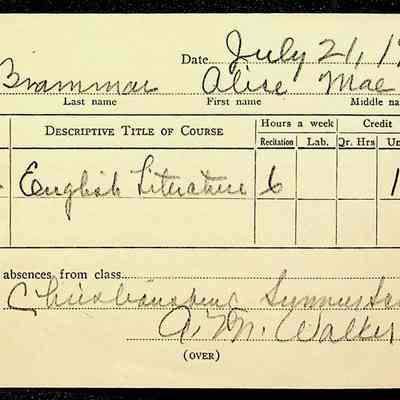 Date July 21, 19
Brammar Alise Mae
Last name First name Middle na
Descriptive Title of Course Hours a week Credit
Recitation Lab. Qr. Hrs Un
English Literature 6 1
absences from class
Christiansburg Summer
A. M. Walker
(OVER)